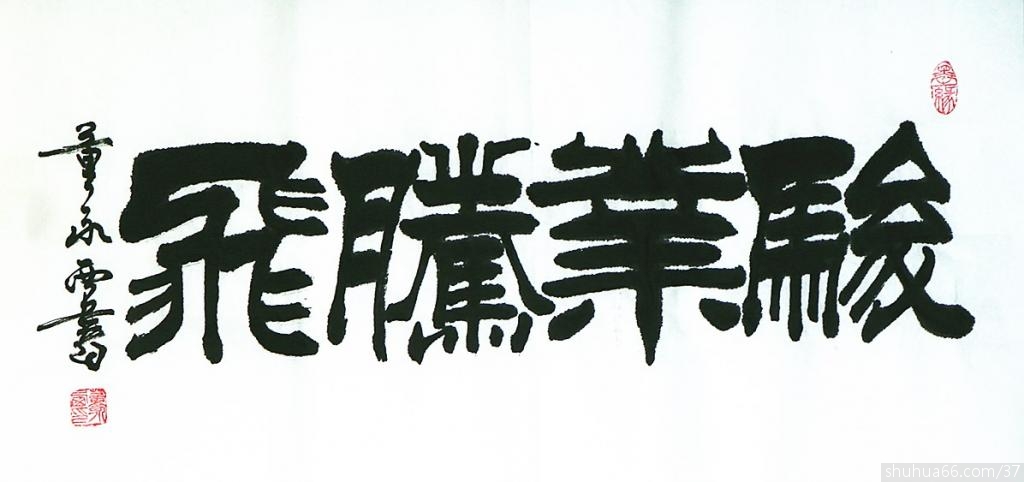 駿業騰飛
董永西書
shuhua66.com/37